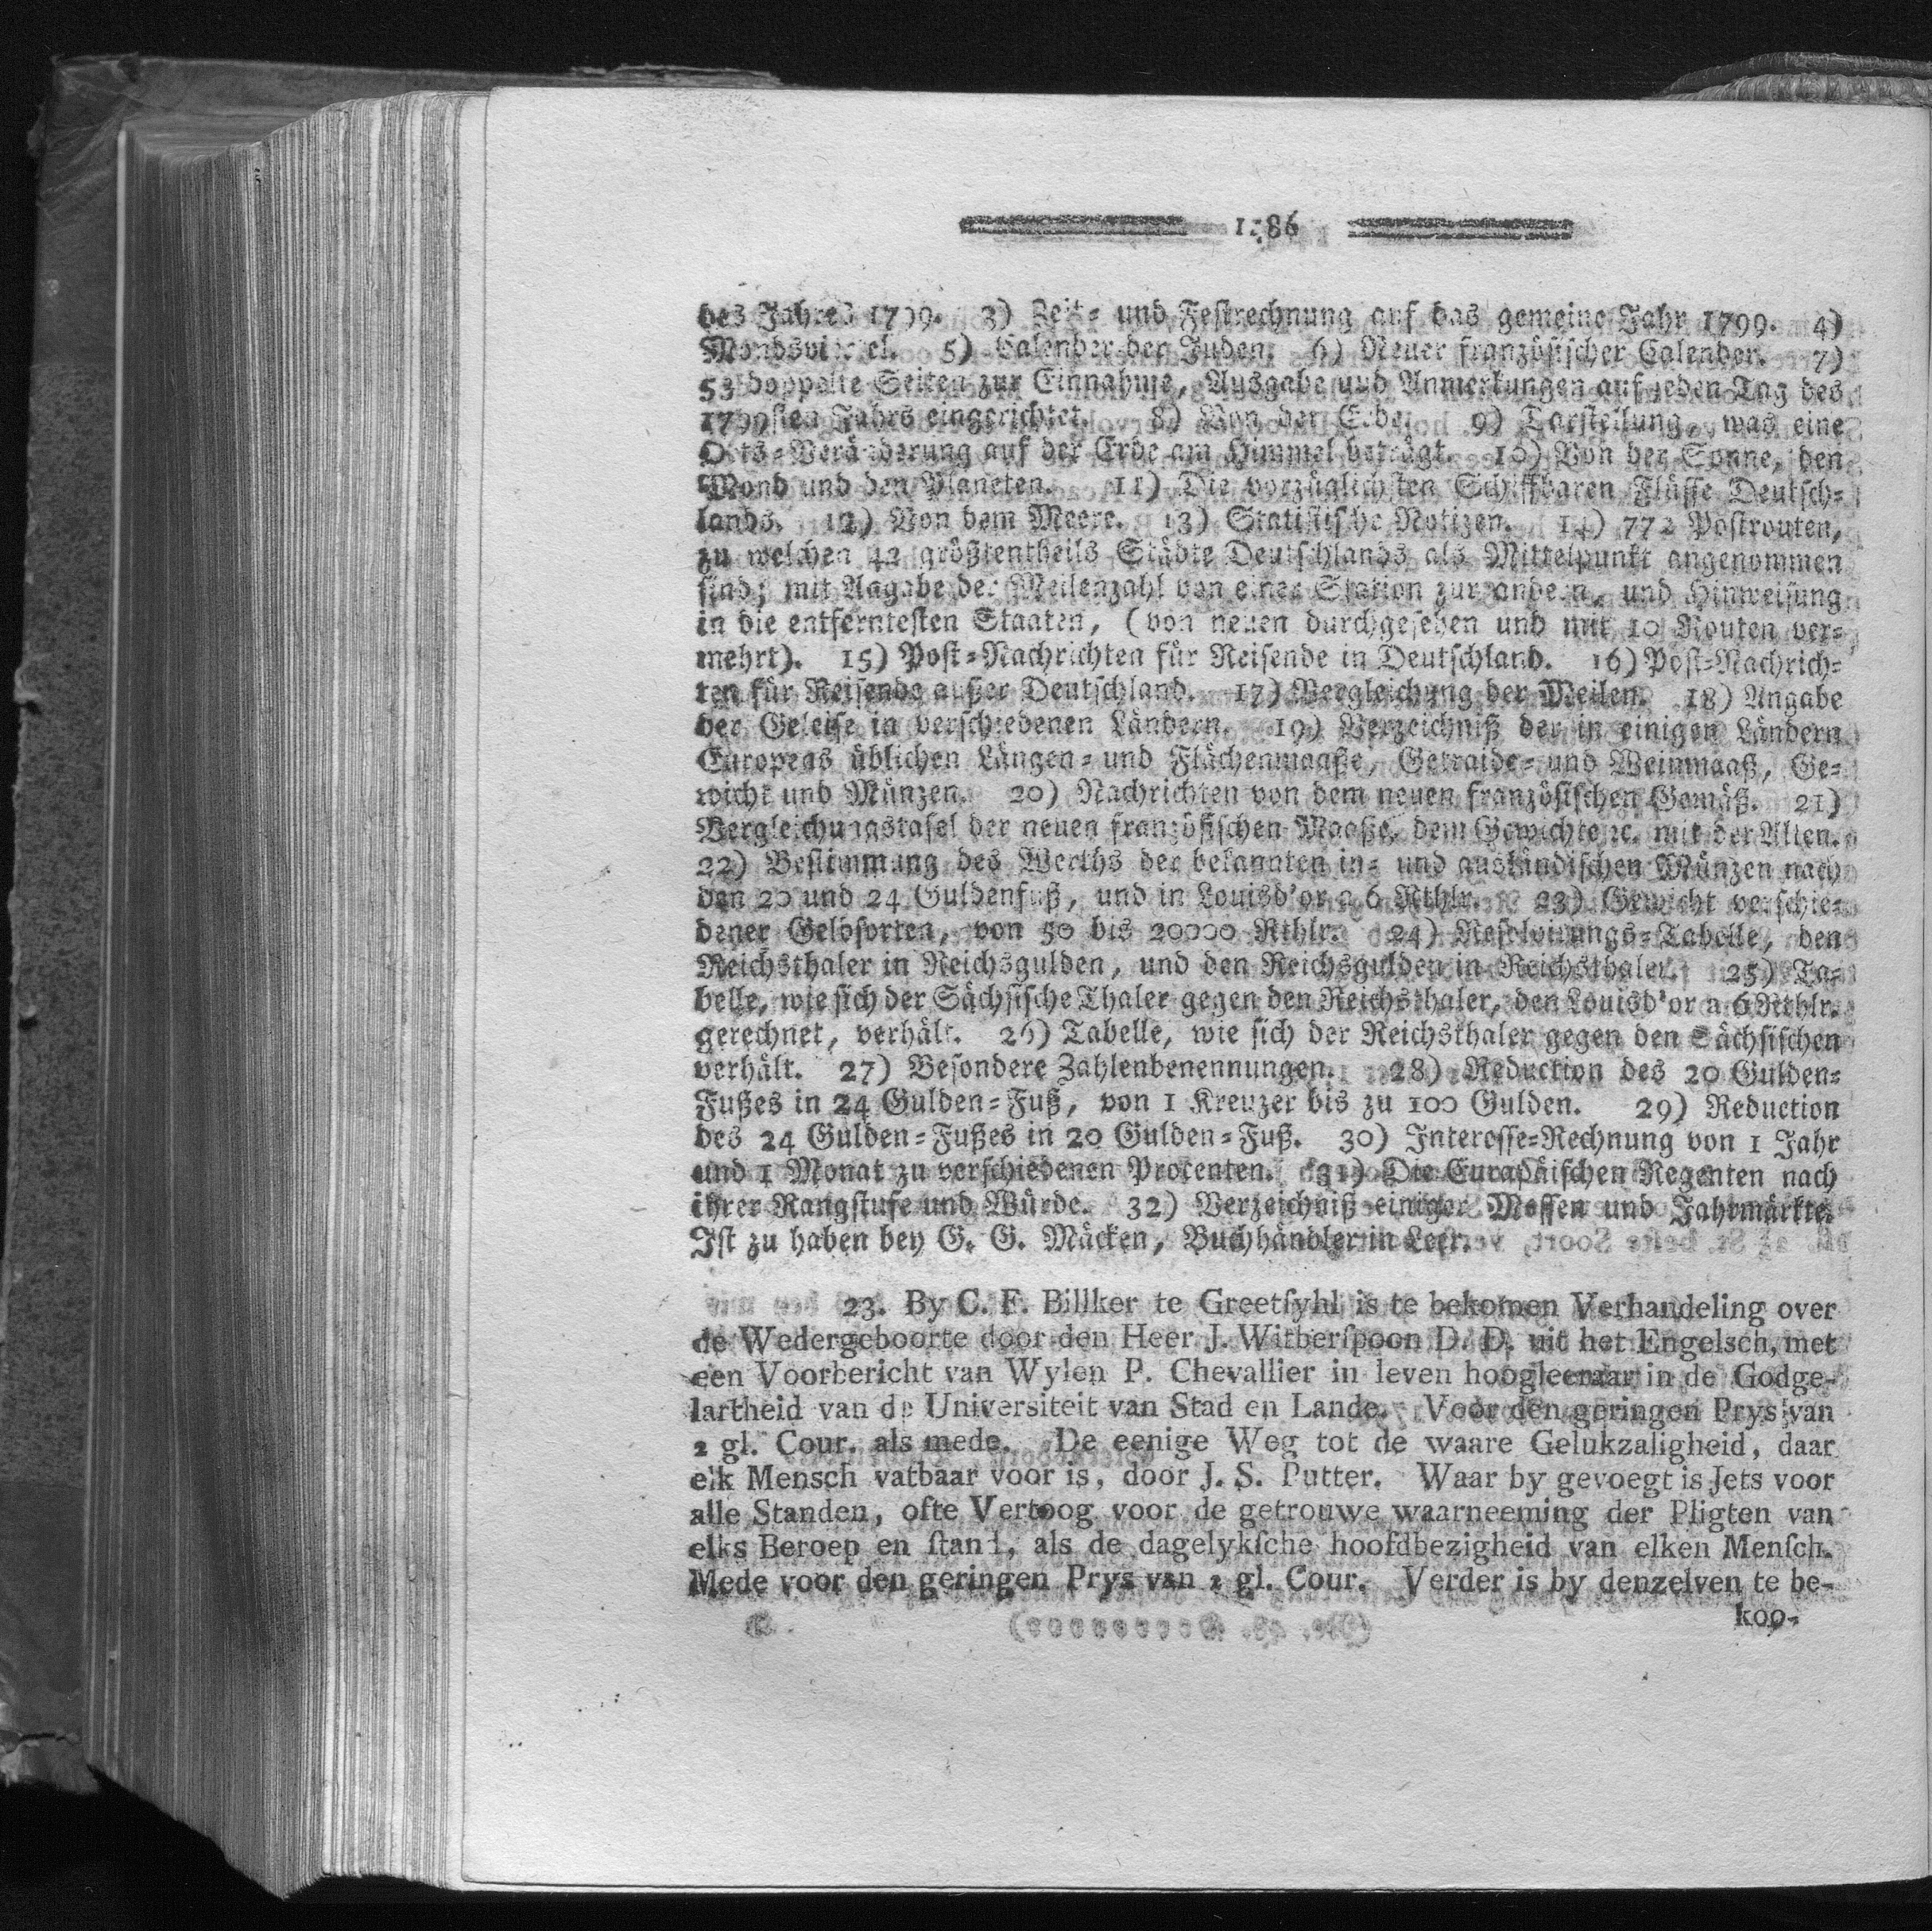 1786
des Jahres 1799. 3) Zeit- und Festrechnung auf das gemeine Jahr 1799. 4)
Mondsviertel. 5) Calender der Juden. 6) Neuer französischer Calender. 7)
53 doppelte Seiten zur Einnahme, Ausgabe und Anmerkungen auf jeden Tag des
1799sten Jahrs eingerichtet. 8) Von der Erde. 9) Darstellung, was eine
Orts-Veränderung auf der Erde am Himmel beträgt. 10) Von der Sonne, den
Mond und den Planeten. 11) Die vorzüglichsten Schiffbaren Flüsse Deutsch-
lands. 12) Von dem Meere. 13) Statistische Notizen. 14) 772 Postrouten,
zu welchen 42 größtentheils Städte Deutschlands als Mittelpunkt angenommen
sind; mit Aagabe der Meilenzahl von einer Station zur andern, und Hinweisung
in die entferntesten Staaten, (von neuen durchgesehen und mit 10 Routen ver-
mehrt). 15) Post-Nachrichten für Reisende in Deutschland. 16) Post-Nachrich-
ten für Reisende außer Deutschland. 17) Vergleichung der Meilen. 18) Angabe
der Geleise in verschiedenen Ländern. 19) Verzeichniß der in einigen Ländern
Europens üblichen Längen- und Flächenmaaße, Getraide- und Weinmaaß, Ge-
wicht und Münzen. 20) Nachrichten von dem neuen französischen Gemäß. 21)
Vergleichungstafel der neuen französischen Maaße, dem Gewichte ꝛc. mit der Alten.
22) Bestimmung des Werths der bekannten in- und ausländischen Münzen nach
den 20 und 24 Guldenfuß, und in Louisd'or a 6 Rthlr. 23) Gewicht verschie-
dener Geldsorten, von 50 bis 20000 Rthlr. 24) Resolvirungs-Tabelle, den
Reichsthaler in Reichsgulden, und den Reichsgulden in Reichsthaler. 25) Ta-
belle, wie sich der Sächsische Thaler gegen den Reichsthaler, den Louisd'or a 6 Rthlr.
gerechnet, verhält. 26) Tabelle, wie sich der Reichsthaler gegen den Sächsischen
verhält. 27) Besondere Zahlenbenennungen. 28) Reduction des 20 Gulden-
Fußes in 24 Gulden-Fuß, von 1 Kreuzer bis zu 100 Gulden. 29) Reduction
des 24 Gulden-Fußes in 20 Gulden-Fuß. 30) Interesse-Rechnung von 1 Jahr
und 1 Monat zu verschiedenen Procenten. 31) Die Europäischen Regenten nach
ihrer Rangstufe und Würde. 32) Verzeichniß einiger Messen und Jahrmärkte.
Ist zu haben bey G. G. Mäcken, Buchhändler in Leer.
23. By C. F. Billker te Greetſyhl is te bekomen Verhandeling over
de Wedergeboorte door den Heer J. Witherſpoon D. D. uit het Engelsch, met
een Voorbericht van Wylen P. Chevallier in leven hoogleeraar in de Godge-
lartheid van de Universiteit van Stad en Lande. Voor den geringen Prys van
2 gl. Cour. als mede. De eenige Weg tot de waare Gelukzaligheid, daar
elk Mensch vatbaar voor is, door J. S. Putter. Waar by gevoegt is Jets voor
alle Standen, ofte Vertoog voor de getrouwe waarneeming der Pligten van
elks Beroep en ſtand, als de dagelykſche hoofdbezigheid van elken Menſch.
Mede voor den geringen Prys van 2 gl. Cour. Verder is by denzelven te be-
koo-